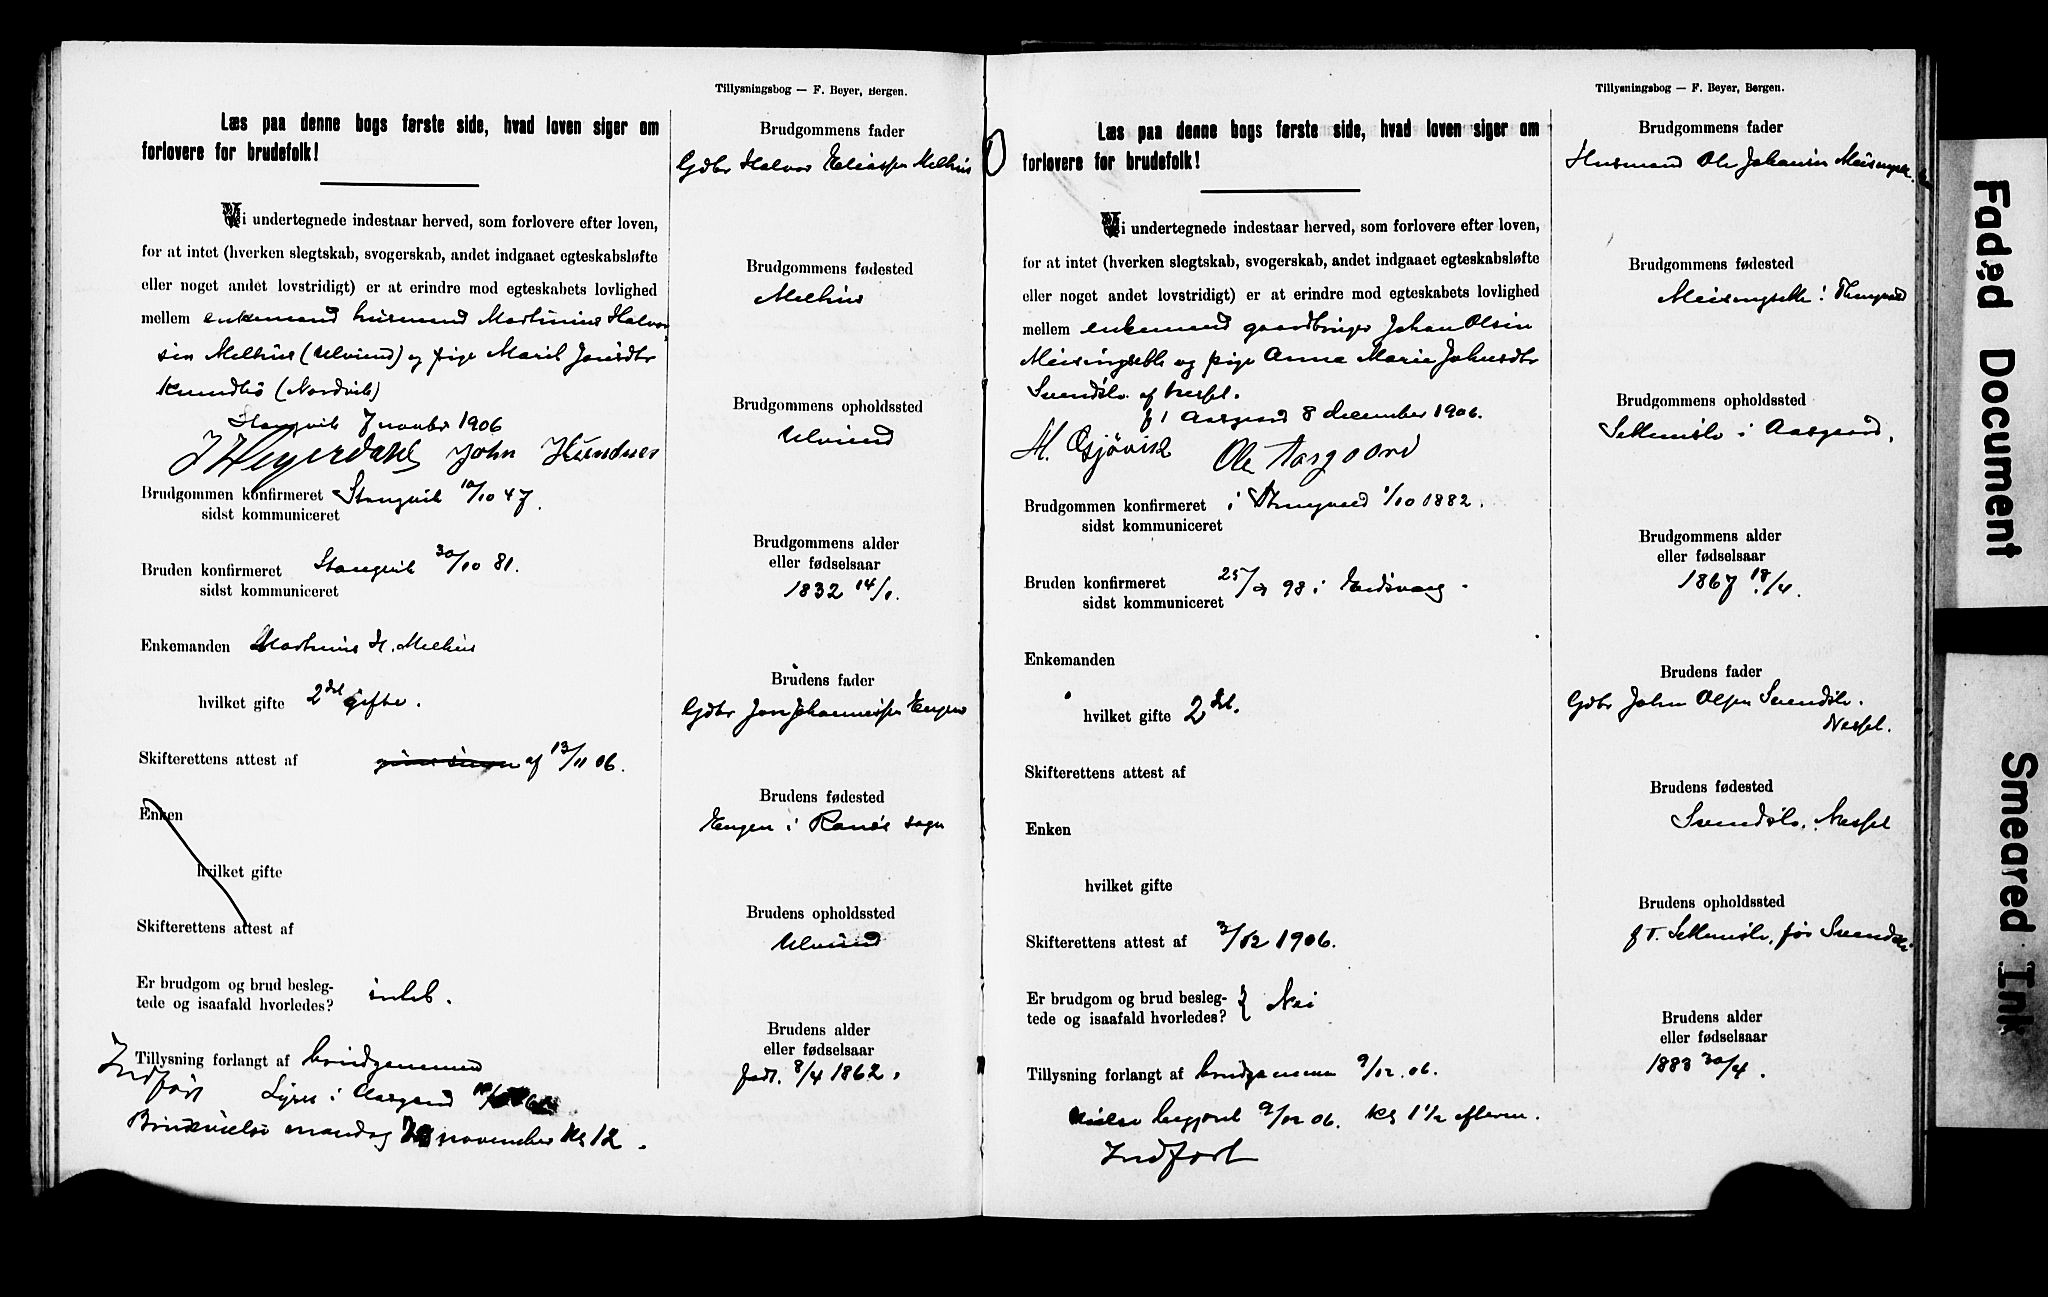 Tillysningsbog — F. Beyer, Bergen.
Læs paa denne bogs første side, hvad loven siger om
forlovere for brudefolk!
Vi undertegnede indestaar herved, som forlovere efter loven,
for at intet (hverken slegtskab, svogerskab, andet indgaaet egteskabsløfte
eller noget andet lovstridigt) er at erindre mod egteskabets lovlighed
mellem enkemand husmand Martinius Halvor
sen Melhus (Ulvund) og pige Marit Jonsdtr
(Nordvik)
Stangvik 7 novbr 1906
John
Brudgommen konfirmeret Stangvik 10/10 47.
sidst kommuniceret
Bruden konfirmeret Stangvik 30/10 81.
sidst kommuniceret
Enkemanden Martinius H. Melhus
hvilket gifte 2det gifte.
Skifterettens attest af af 13/11 06.
Enken
hvilket gifte
Skifterettens attest af
Er brudgom og brud besleg-
tede og isaafald hvorledes?
Tillysning forlangt af brudgommen
Indført Lyses i Aasgaard
Brudevielse mandag november kl 12.
Brudgommens fader
Gdbr Halvor Eliassen Melhus
Brudgommens fødested
Melhus
Brudgommens opholdssted
Ulvund
Brudgommens alder
eller fødselsaar
1832 14/1.
Brudens fader
Gdbr Jon Johannessen Engen
Brudens fødested
Engen i Ranes sogn
Brudens opholdssted
Ulvund
Brudens alder
eller fødselsaar
født. 8/4 1862.
Tillysningsbog — F. Beyer, Bergen.
Læs paa denne bogs første side, hvad loven siger om
forlovere for brudefolk!
Vi undertegnede indestaar herved, som forlovere efter loven,
for at intet (hverken slegtskab, svogerskab, andet indgaaet egteskabsløfte
eller noget andet lovstridigt) er at erindre mod egteskabets lovlighed
mellem enkemand gaardbruger Johan Olsen
Meisingseth og pige Anna Marie Johnsdtr
Svendsli af Nesset.
Aasgaard 8 december 1906.
M. Gjøvik Ole Aasgaard
Brudgommen konfirmeret i Tingvold 1/10 1882.
sidst kommuniceret
Bruden konfirmeret 25/9 98 i Eidsvaag.
sidst kommuniceret
Enkemanden
hvilket gifte 2det.
Skifterettens attest af
Enken
hvilket gifte
Skifterettens attest af 3/12 1906.
Er brudgom og brud besleg-
tede og isaafald hvorledes? } Nei
Tillysning forlangt af brudgommen 9/12. 06.
Vielse begjært 9/12 06. kl 1 1/2 efterm.
Indført
Brudgommens fader
Husmand Ole Johansen Meisingseth.
Brudgommens fødested
Meisingseth i Tingvold
Brudgommens opholdssted
Settemsli i Aasgaard.
Brudgommens alder
eller fødselsaar
1867 18/4.
Brudens fader
Gdbr John Olsen Svendsli.
Nesset.
Brudens fødested
Svendsli. Nesset
Brudens opholdssted
f. T. Settemsli, før Svendsli
Brudens alder
eller fødselsaar
1883 30/4.
Faded Document
Smeared Ink